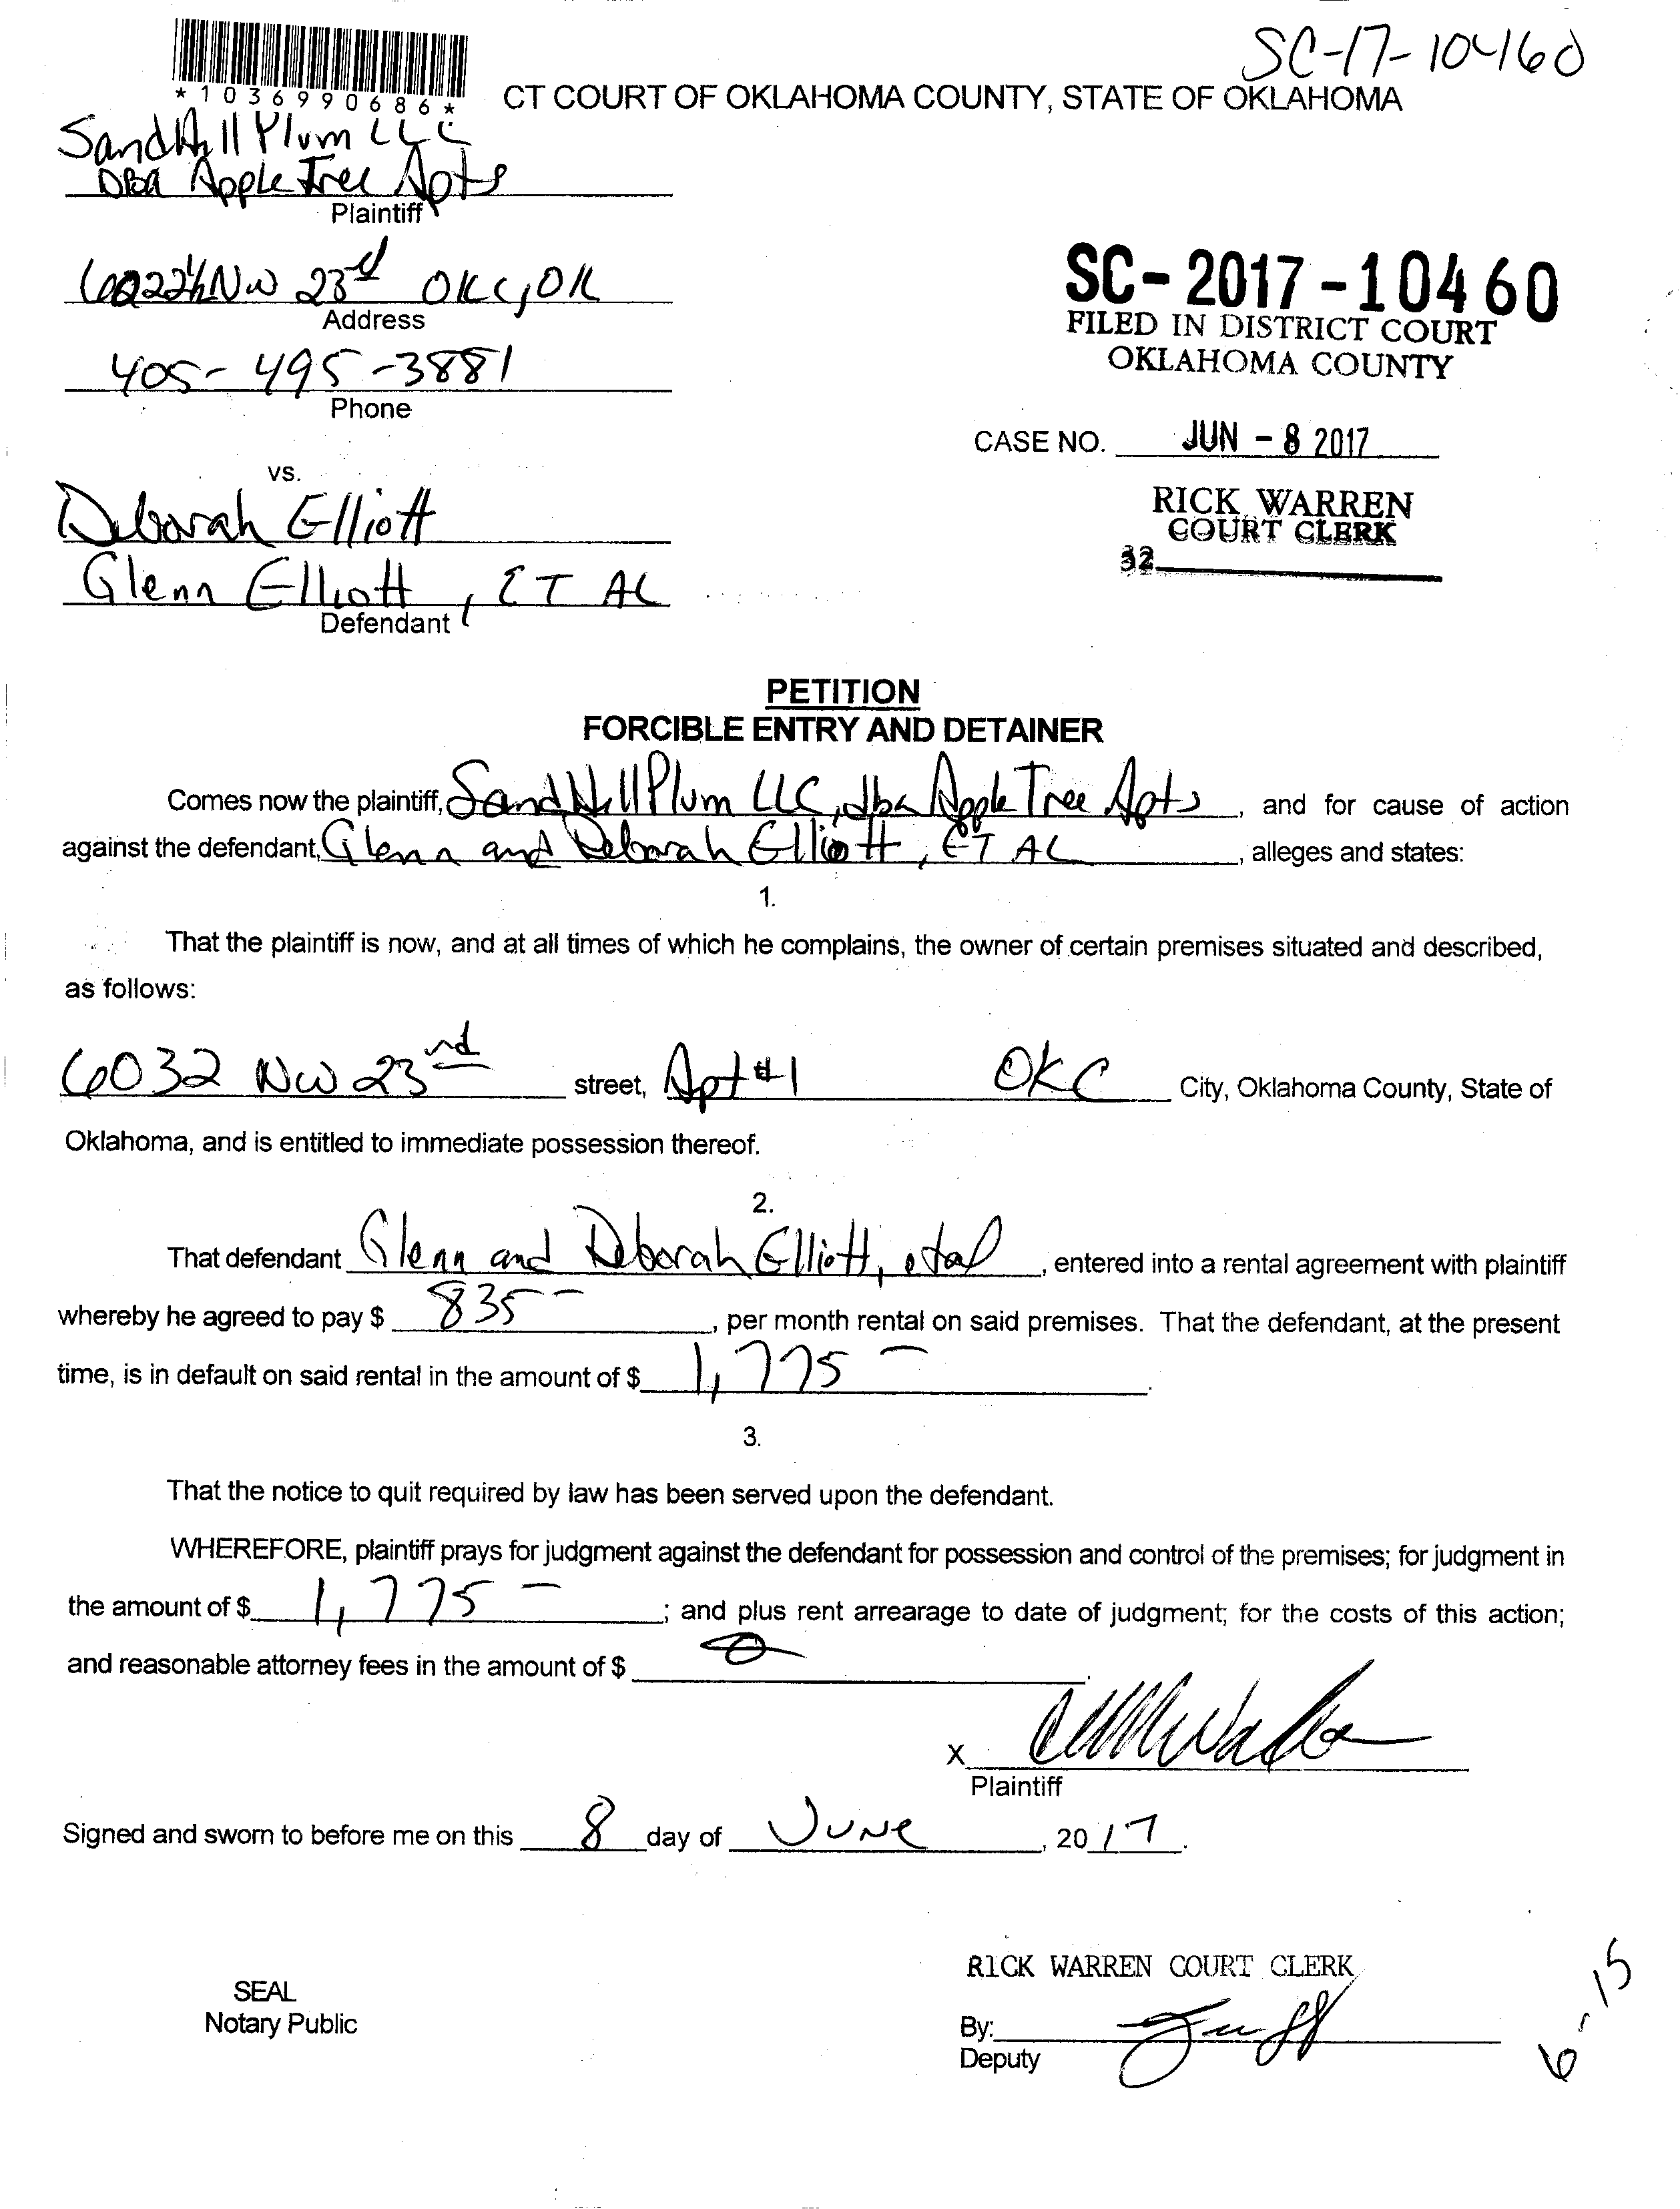 SC-17-10460
*1036990686*
CT COURT OF OKLAHOMA COUNTY, STATE OF OKLAHOMA
SandHill Plum LLC
DBA Apple Tree Apts
Plaintiff
NW 23rd OKC, OK
Address
405-495-3881
Phone
SC-2017-10460
FILED IN DISTRICT COURT
OKLAHOMA COUNTY
CASE NO. JUN - 8 2017
RICK WARREN
COURT CLERK
32
vs.
Deborah Elliott
Glenn Elliott, ET AL
Defendant
PETITION
FORCIBLE ENTRY AND DETAINER
Comes now the plaintiff, SandHill Plum LLC, dba Apple Tree Apts, and for cause of action
against the defendant, Glenn and Deborah Elliott, ET AL, alleges and states:
1.
That the plaintiff is now, and at all times of which he complains, the owner of certain premises situated and described,
as follows:
6032 NW 23nd street, Apt #1 OKC City, Oklahoma County, State of
Oklahoma, and is entitled to immediate possession thereof.
2.
That defendant Glenn and Deborah Elliott, et al, entered into a rental agreement with plaintiff
whereby he agreed to pay $ 835-, per month rental on said premises. That the defendant, at the present
time, is in default on said rental in the amount of $ 1,775-.
3.
That the notice to quit required by law has been served upon the defendant.
WHEREFORE, plaintiff prays for judgment against the defendant for possession and control of the premises; for judgment in
the amount of $ 1,775-; and plus rent arrearage to date of judgment; for the costs of this action;
and reasonable attorney fees in the amount of $ 0.
X
Plaintiff
Signed and sworn to before me on this 8 day of June, 2017.
SEAL
Notary Public
RICK WARREN COURT CLERK
By:
Deputy
6-15